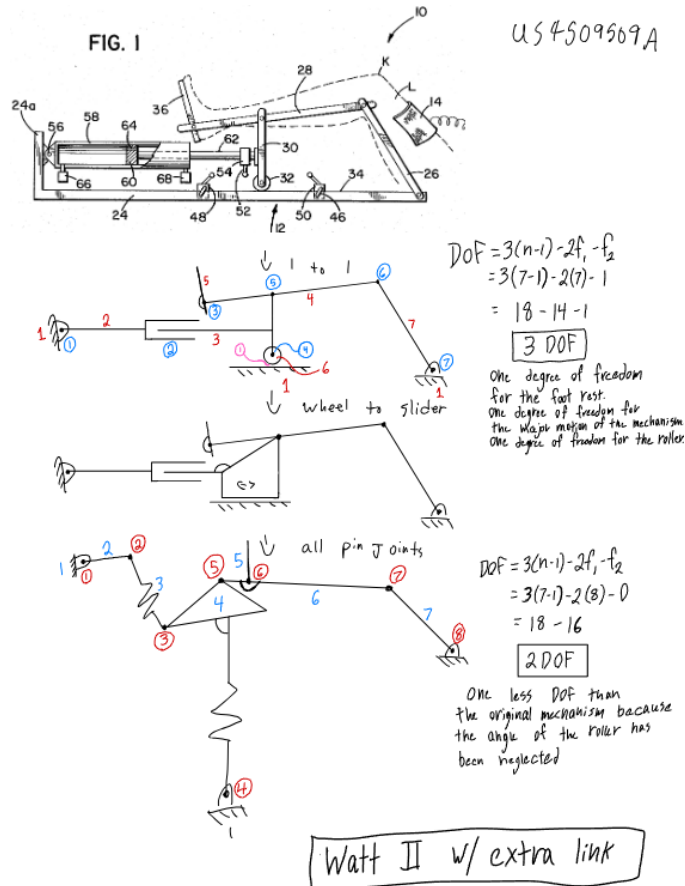 US4509509A
FIG. 1
10
K
L
14
28
36
24a
58
64
56
62
30
26
54
32
34
66
60
68
52
50
46
24
48
12
↓ 1 to 1
DOF = 3(n-1) - 2f₁ - f₂
= 3(7-1) - 2(7) - 1
= 18 - 14 - 1
3 DOF
One degree of freedom
for the foot rest.
One degree of freedom for
the major motion of the mechanism
One degree of freedom for the roller
5
5
6
3
4
1
2
1
2
3
1
4
6
1
7
7
1
↓ wheel to slider
<->
↓ all pin joints
1
2
2
1
3
3
5
5
6
4
6
7
7
8
4
1
DOF = 3(n-1) - 2f₁ - f₂
= 3(7-1) - 2(8) - 0
= 18 - 16
2 DOF
One less DOF than
the original mechanism because
the angle of the roller has
been neglected
Watt II w/ extra link